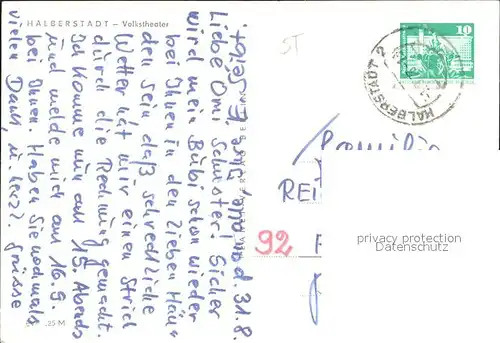 HALBERSTADT – Volkstheater
31.8.
Liebe Omi Schuster! Sicher
wird mein Bübi schon wieder
bei Ihnen in den lieben Hän-
den sein, daß schreckliche
Wetter hat mir einen Strich
durch die Rechnung gemacht.
Ich komme nun am 15. Abends
und melde mich am 16.9.
bei Ihnen. Haben Sie nochmals
vielen Dank, u. herzl. Grüsse
25 M
BERLIN
ST
10
HALBERSTADT 2
Familie
REI
92
privacy protection
Datenschutz